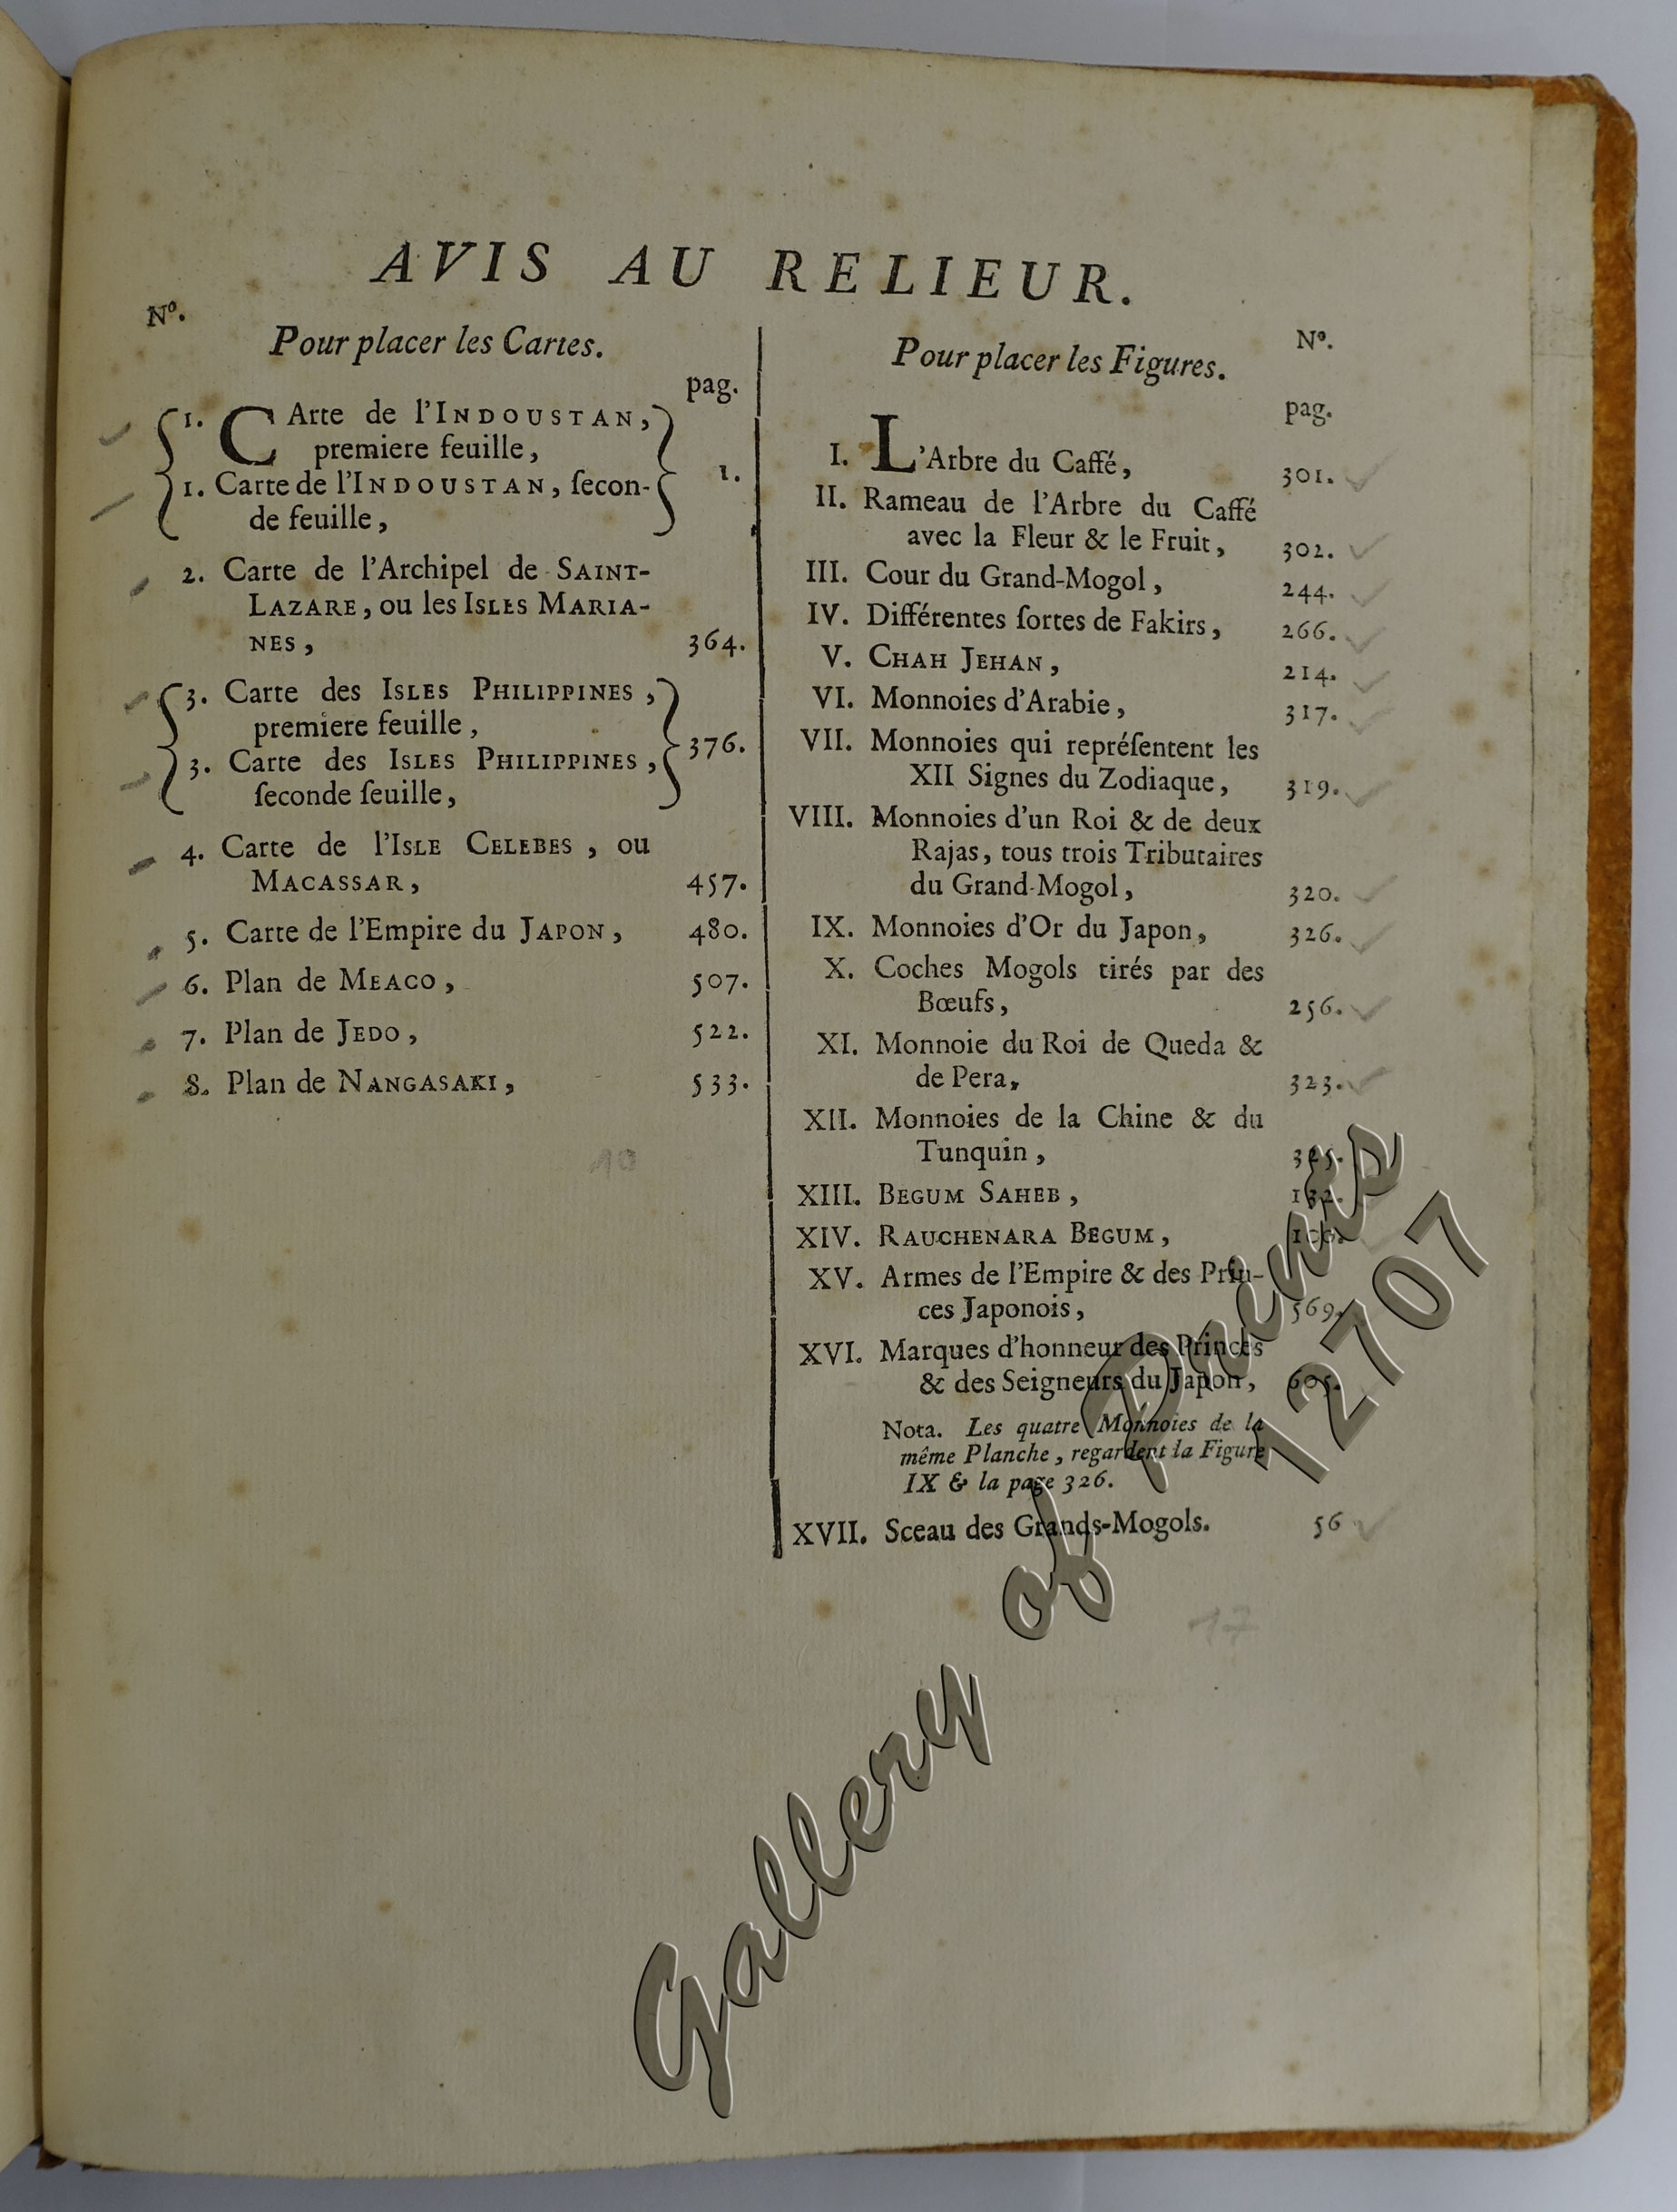 AVIS AU RELIEUR.
Nº.
Pour placer les Cartes.
pag.
1. CArte de l'INDOUSTAN,
premiere feuille,
1. Carte de l'INDOUSTAN, ſecon-
de feuille,
1.
2. Carte de l'Archipel de SAINT-
LAZARE, ou les ISLES MARIA-
NES, 364.
3. Carte des ISLES PHILIPPINES,
premiere feuille,
376.
3. Carte des ISLES PHILIPPINES,
ſeconde feuille,
4. Carte de l'ISLE CELEBES, ou
MACASSAR, 457.
5. Carte de l'Empire du JAPON, 480.
6. Plan de MEACO, 507.
7. Plan de JEDO, 522.
8. Plan de NANGASAKI, 533.
10
Nº.
Pour placer les Figures.
pag.
I. L'Arbre du Caffé, 301.
II. Rameau de l'Arbre du Caffé
avec la Fleur & le Fruit, 302.
III. Cour du Grand-Mogol, 244.
IV. Différentes ſortes de Fakirs, 266.
V. CHAH JEHAN, 214.
VI. Monnoies d'Arabie, 317.
VII. Monnoies qui repréſentent les
XII Signes du Zodiaque, 319.
VIII. Monnoies d'un Roi & de deux
Rajas, tous trois Tributaires
du Grand-Mogol, 320.
IX. Monnoies d'Or du Japon, 326.
X. Coches Mogols tirés par des
Bœufs, 256.
XI. Monnoie du Roi de Queda &
de Pera, 323.
XII. Monnoies de la Chine & du
Tunquin, 325.
XIII. BEGUM SAHEB, 132.
XIV. RAUCHENARA BEGUM,
XV. Armes de l'Empire & des Prin-
ces Japonois, 569.
XVI. Marques d'honneur des Princes
& des Seigneurs du Japon, 605.
Nota. Les quatre Monnoies de la
même Planche, regardent la Figure
IX & la page 326.
XVII. Sceau des Grands-Mogols. 56
17
Gallery of Prints
12707